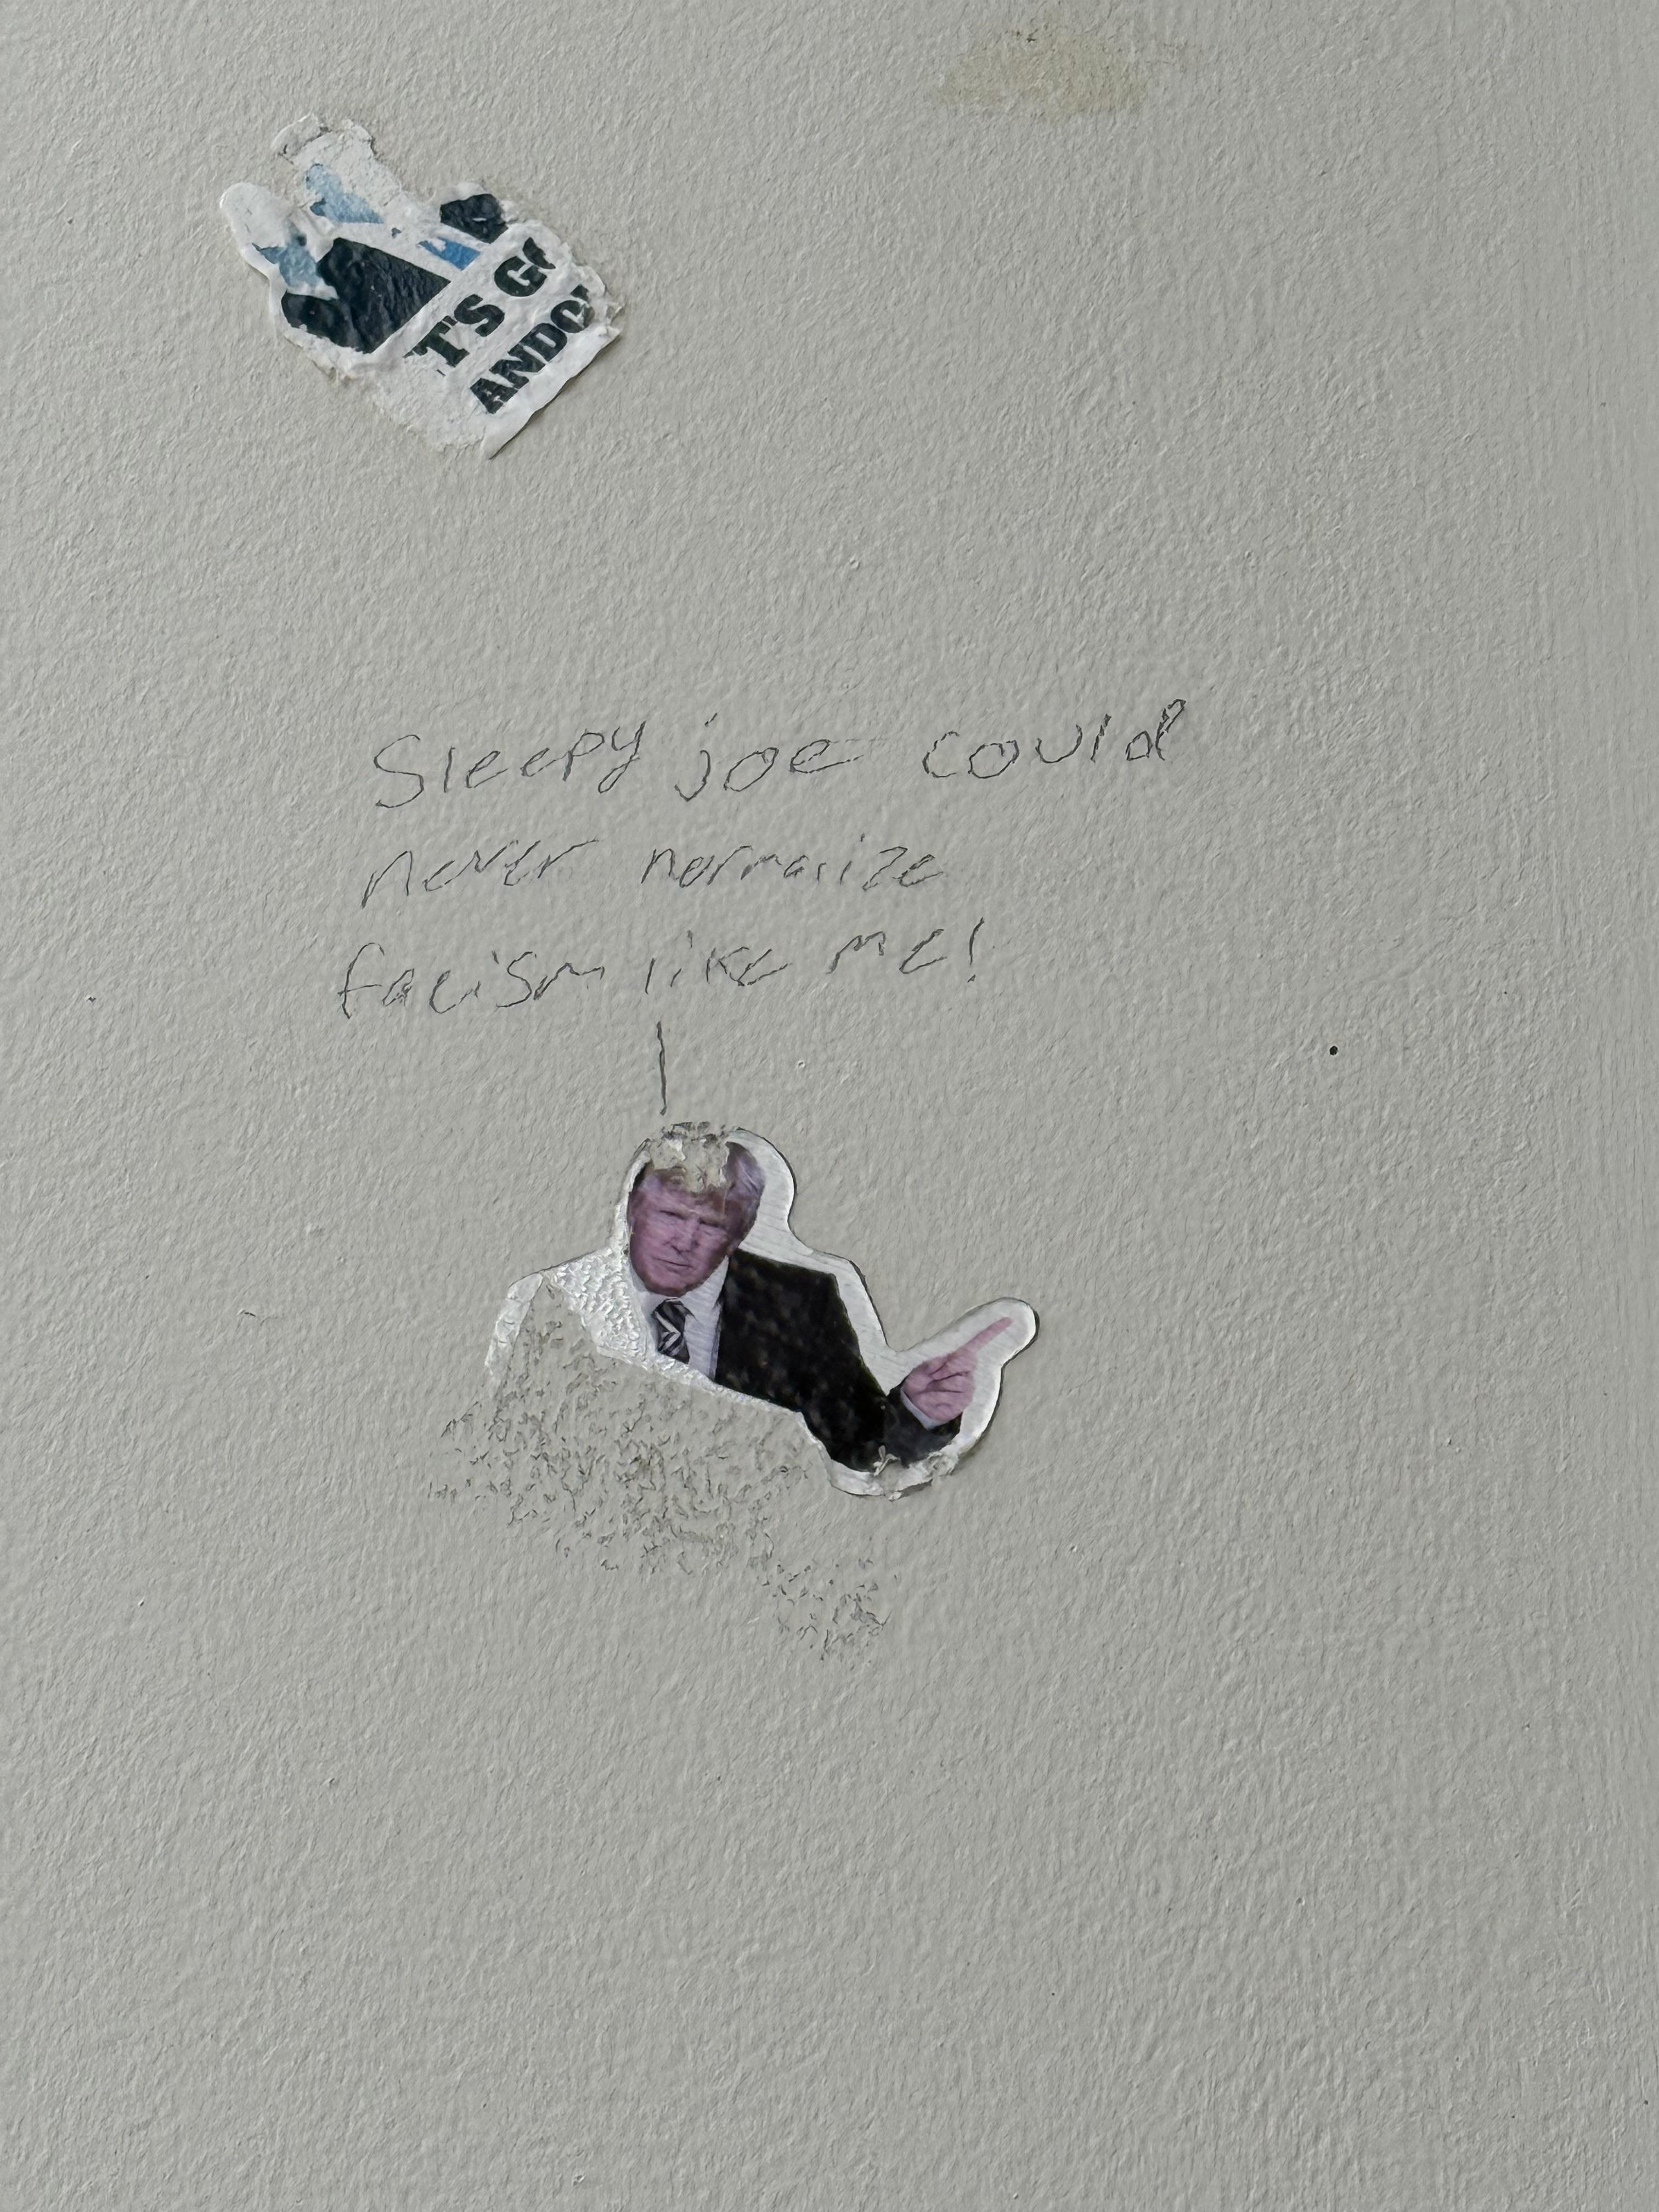 T'S GO
ANDO
Sleepy joe could
never normalize
facism like me!